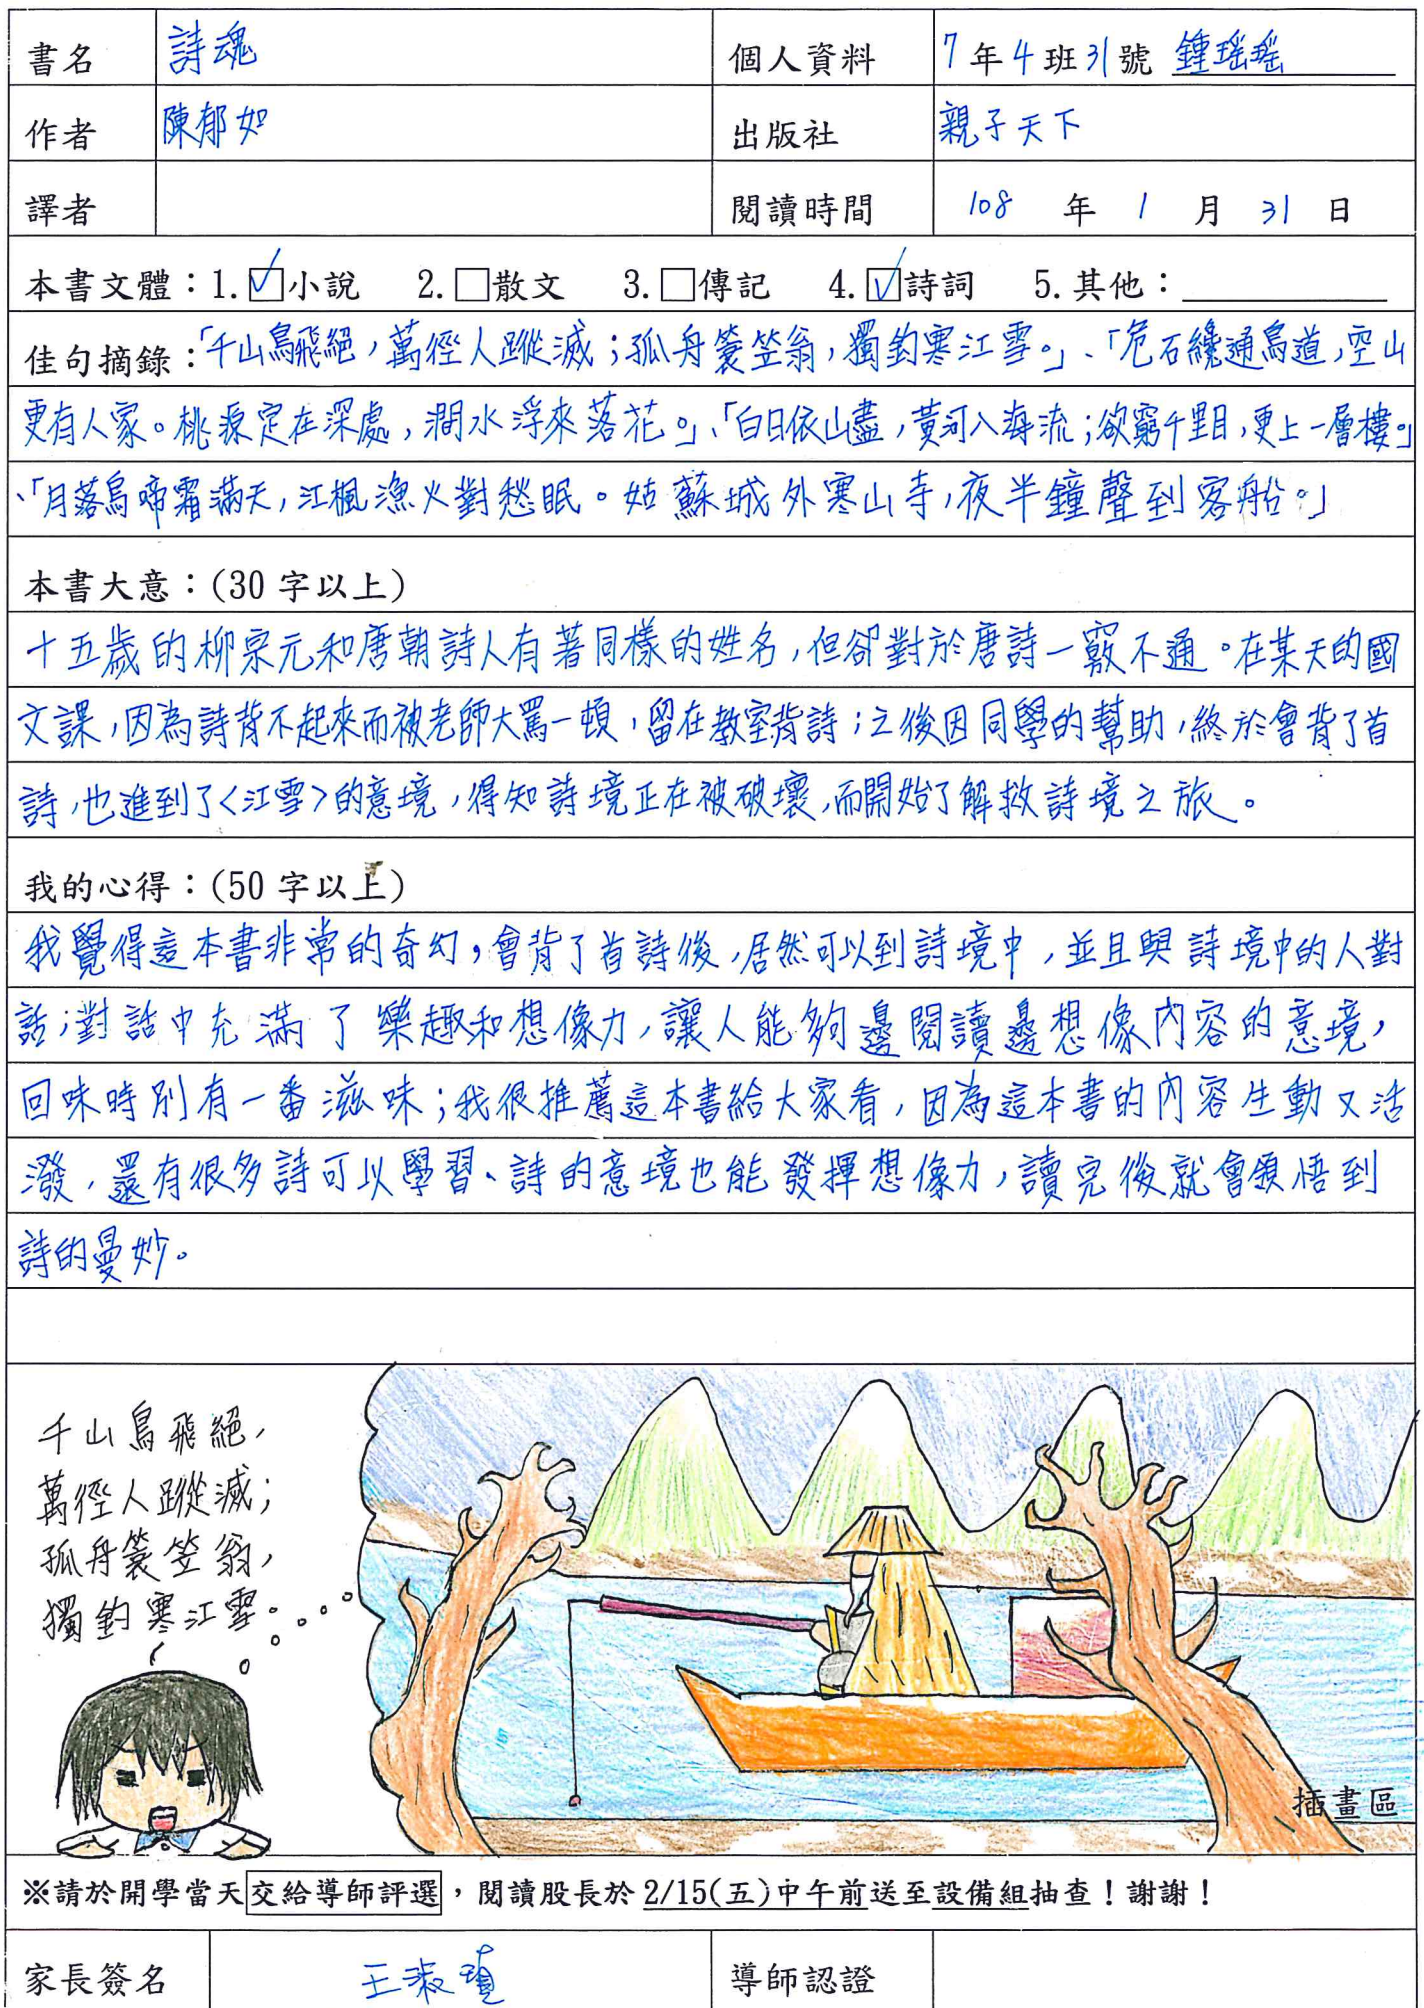 書名 詩魂 個人資料 7年4班31號 鍾瑤瑤
作者 陳郁如 出版社 親子天下
譯者 閱讀時間 108 年 1 月 31 日
本書文體：1.☑小說 2.□散文 3.□傳記 4.☑詩詞 5.其他：
佳句摘錄：「千山鳥飛絕，萬徑人蹤滅；孤舟簑笠翁，獨釣寒江雪。」、「危石纔通鳥道，空山
更有人家。桃源定在深處，澗水浮來落花。」、「白日依山盡，黃河入海流；欲窮千里目，更上一層樓。」
、「月落烏啼霜滿天，江楓漁火對愁眠。姑蘇城外寒山寺，夜半鐘聲到客船。」
本書大意：(30 字以上)
十五歲的柳宗元和唐朝詩人有著同樣的姓名，但卻對於唐詩一竅不通。在某天的國
文課，因為詩背不起來而被老師大罵一頓，留在教室背詩；之後因同學的幫助，終於會背了首
詩，也進到了<江雪>的意境，得知詩境正在被破壞，而開始了解救詩境之旅。
我的心得：(50 字以上)
我覺得這本書非常的奇幻，會背了首詩後，居然可以到詩境中，並且與詩境中的人對
話；對話中充滿了樂趣和想像力，讓人能夠邊閱讀邊想像內容的意境，
回味時別有一番滋味；我很推薦這本書給大家看，因為這本書的內容生動又活
潑，還有很多詩可以學習、詩的意境也能發揮想像力，讀完後就會領悟到
詩的曼妙。
千山鳥飛絕，
萬徑人蹤滅；
孤舟簑笠翁，
獨釣寒江雪。
插畫區
※請於開學當天交給導師評選，閱讀股長於 2/15(五)中午前送至設備組抽查！謝謝！
家長簽名 王淑 導師認證